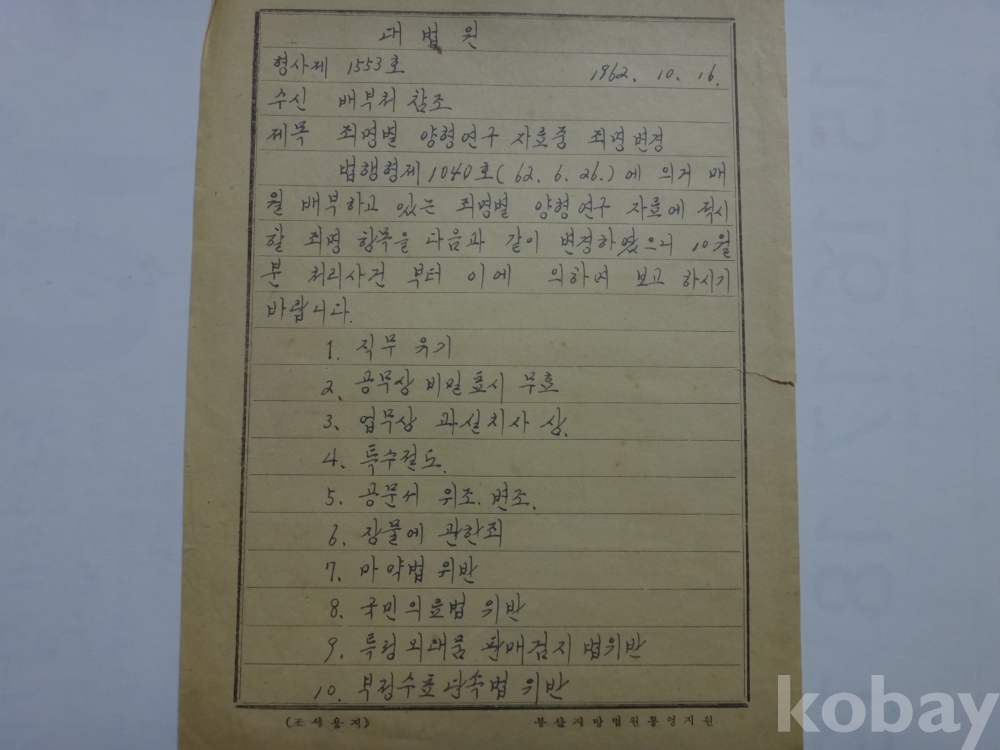 대법원
형사제 1553호 1962. 10. 16.
수신 배부처 참조
제목 죄명별 양형연구 자료중 죄명변경
법행형제1040호(62.6.26.)에 의거 매
월 배부하고 있는 죄명별 양형연구 자료에 적시
할 죄명 항목을 다음과 같이 변경하였으니 10월
분 처리사건 부터 이에 의하여 보고 하시기
바랍니다.
1. 직무 유기
2. 공무상 비밀표시 무효
3. 업무상 과실치사 상.
4. 특수절도.
5. 공문서 위조. 변조.
6. 장물에 관한죄
7. 마약법 위반
8. 국민의료법 위반
9. 특정외래품 판매검지법위반
10. 부정수표단속법 위반
(조서용지) 부산지방법원통영지원
kobay